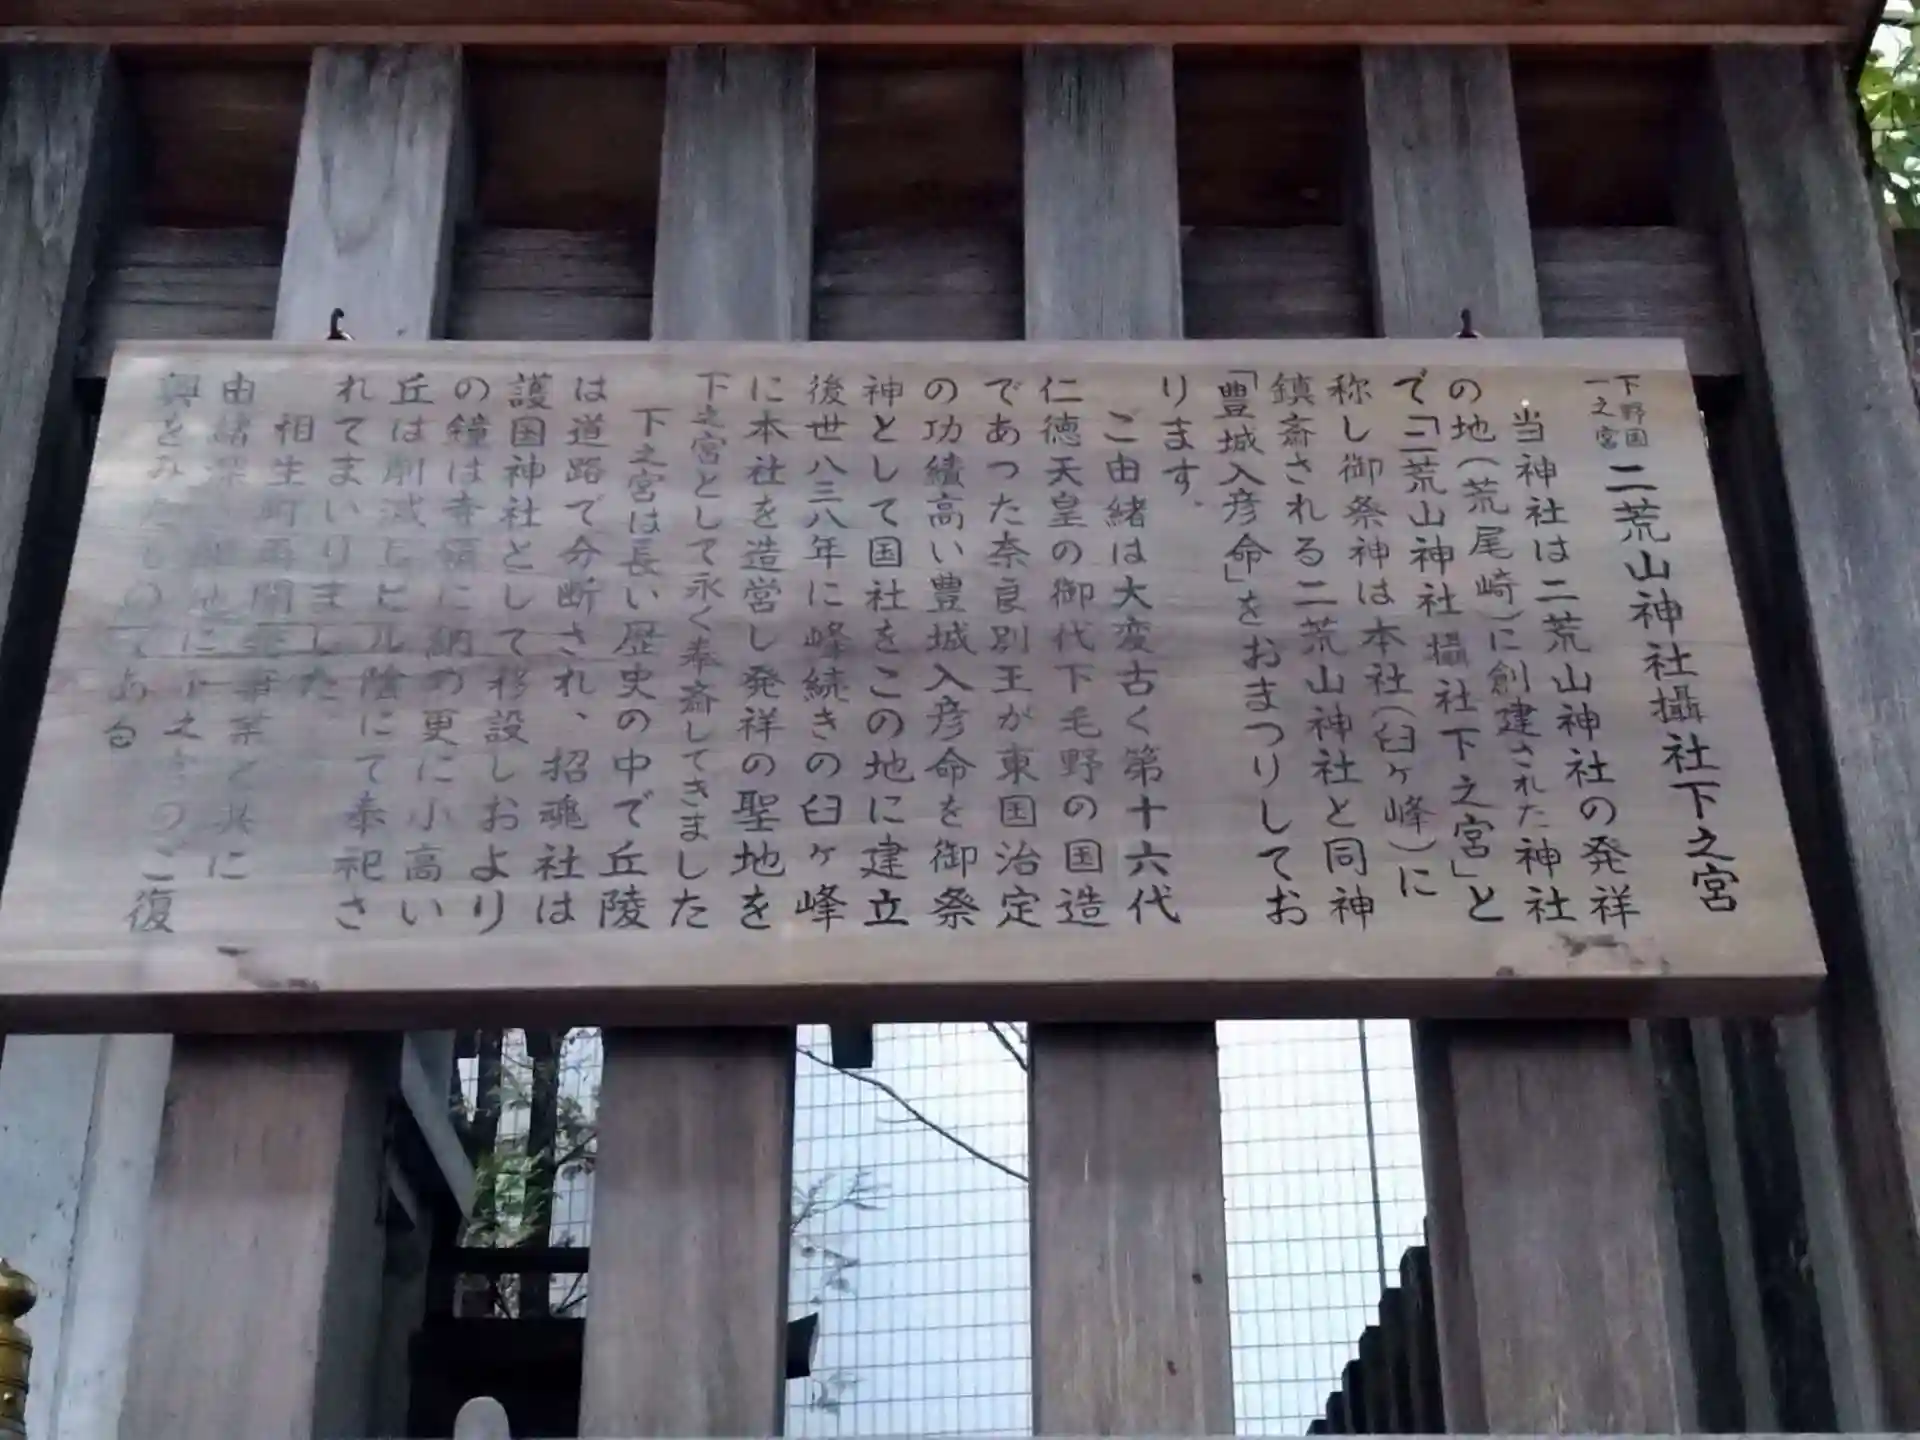 下野国
一之宮 二荒山神社攝社下之宮
当神社は二荒山神社の発祥
の地(荒尾崎)に創建された神社
で「二荒山神社攝社下之宮」と
称し御祭神は本社(臼ヶ峰)に
鎮斎される二荒山神社と同神
「豊城入彦命」をおまつりしてお
ります。
ご由緒は大変古く第十六代
仁徳天皇の御代下毛野の国造
であった奈良別王が東国治定
の功績高い豊城入彦命を御祭
神として国社をこの地に建立
後世八三八年に峰続きの臼ヶ峰
に本社を造営し発祥の聖地を
下之宮として永く奉斎してきました
下之宮は長い歴史の中で丘陵
は道路で分断され、招魂社は
護国神社として移設しおより
の鐘は寺領に納め更に小高い
丘は削減しビル陰にて奉祀さ
れてまいりました
相生町再開発事業と共に
由緒深い に下之宮のご復
興をみたものである